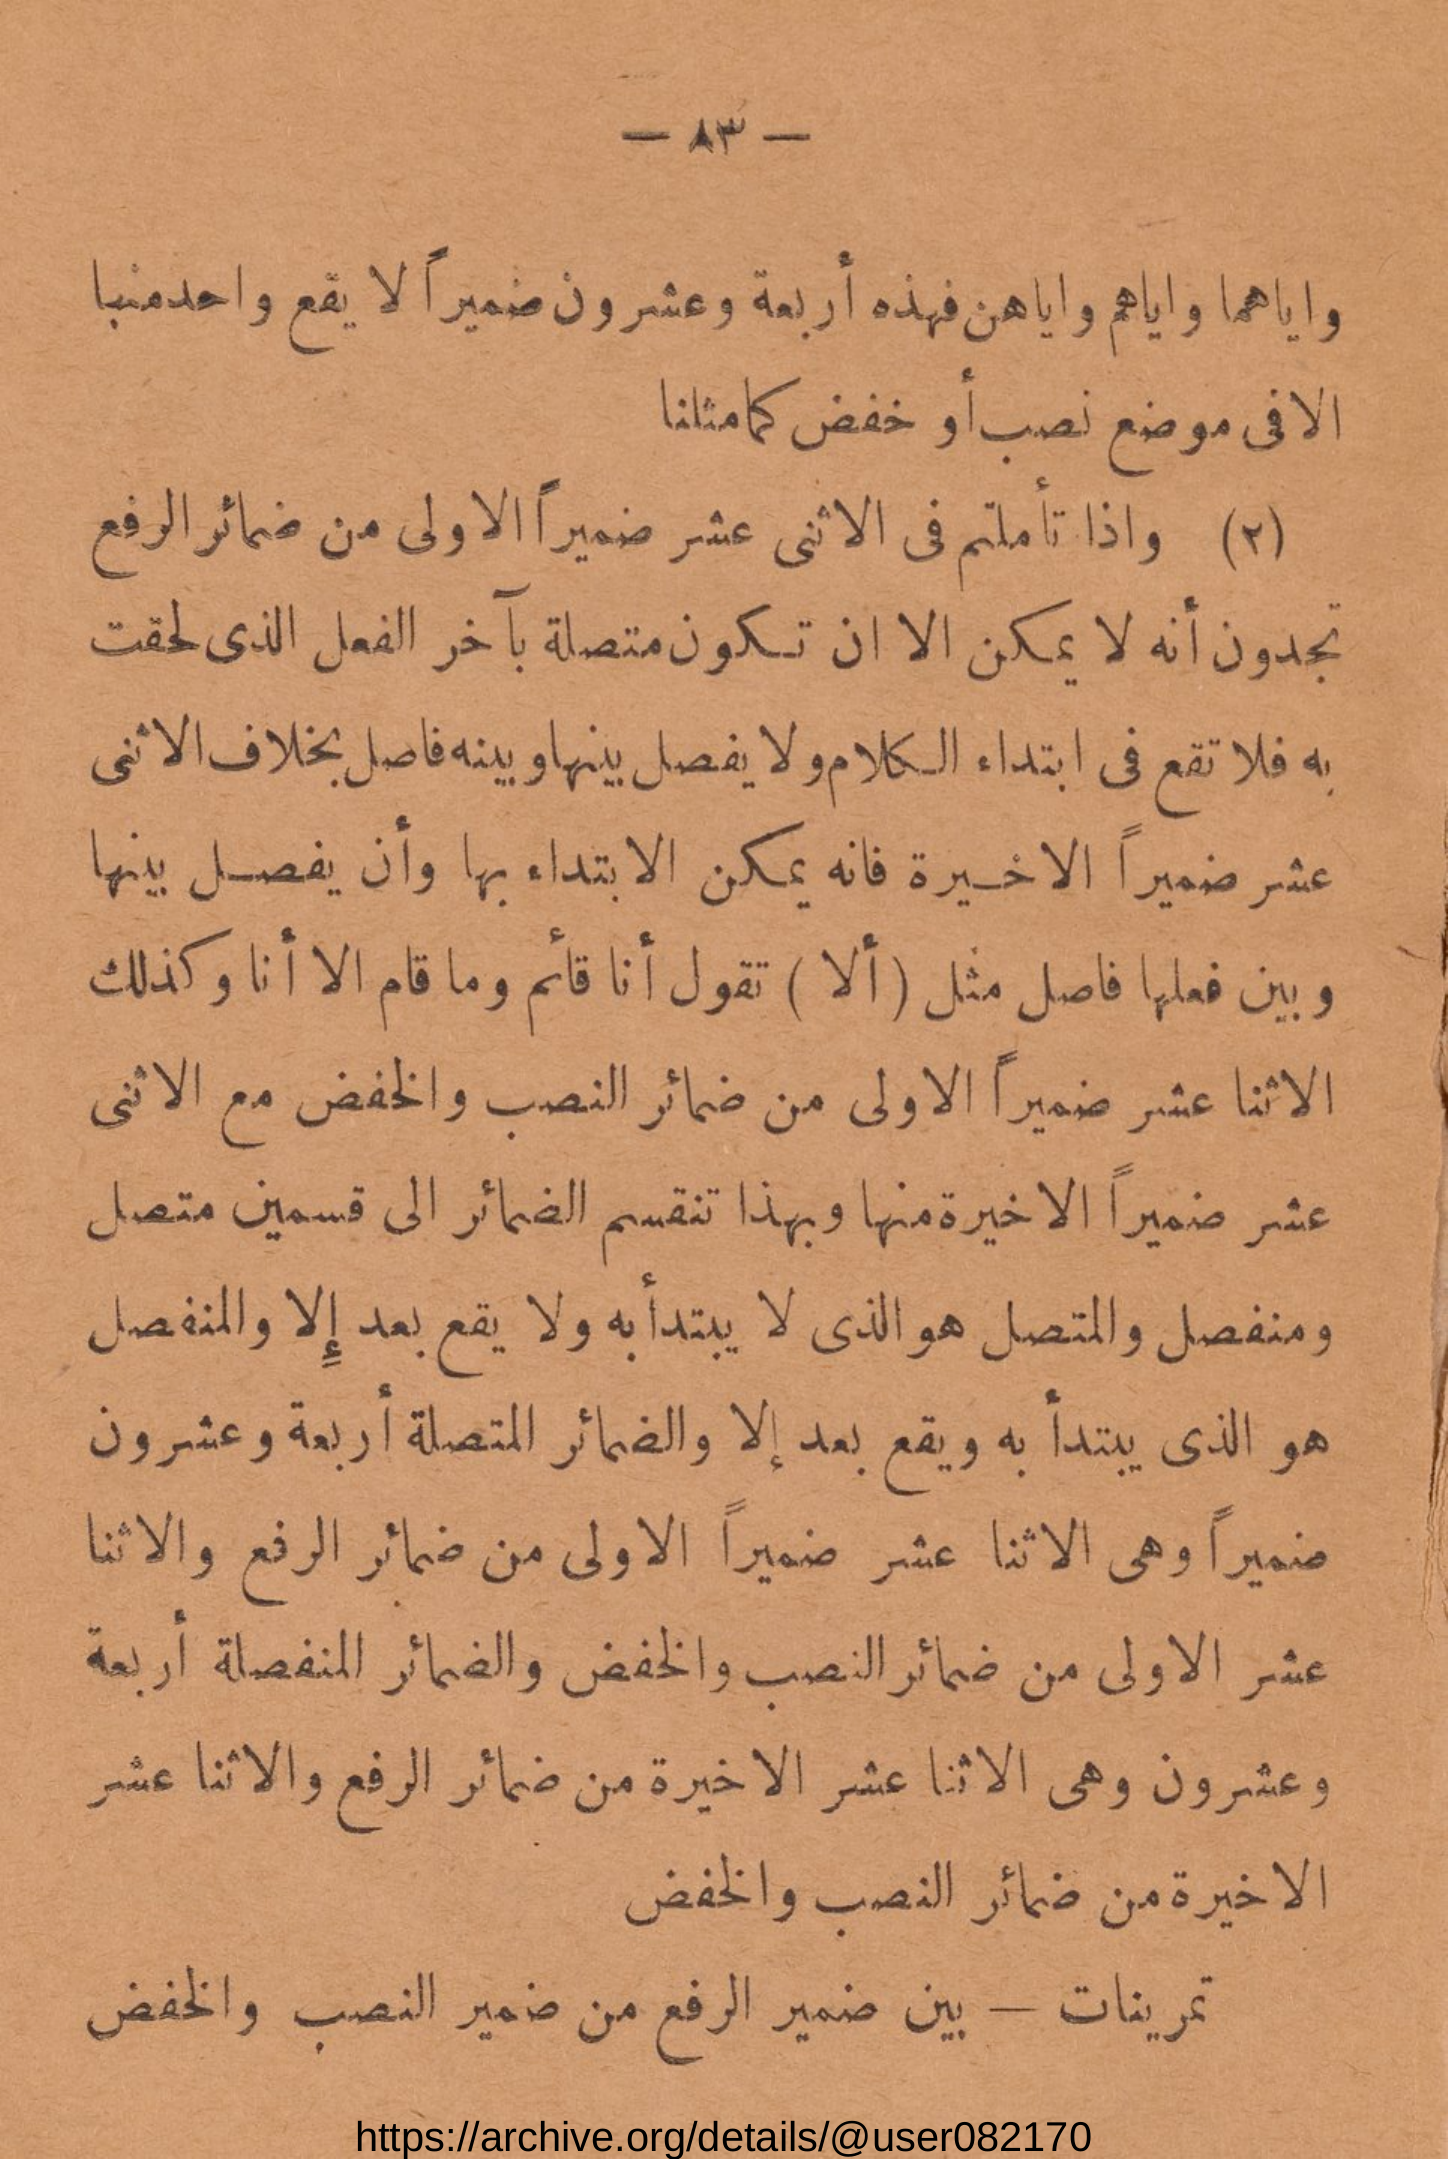 — ٨٣ —
واياهما واياهم واياهن فهذه أربعة وعشرون ضميراً لا يقع واحد منها
الا فى موضع نصب أو خفض كما مثلنا
(٢) واذا تأملتم فى الاثنى عشر ضميراً الاولى من ضمائر الرفع
تجدون أنه لا يمكن الا ان تكون متصلة بآخر الفعل الذى لحقت
به فلا تقع فى ابتداء الكلام ولا يفصل بينها وبينه فاصل بخلاف الاثنى
عشر ضميراً الاخيرة فانه يمكن الابتداء بها وأن يفصل بينها
وبين فعلها فاصل مثل (ألا) تقول أنا قأئم وما قام الا أنا وكذلك
الاثنا عشر ضميراً الاولى من ضمائر النصب والخفض مع الاثنى
عشر ضميراً الاخيرة منها وبهذا تنقسم الضمائر الى قسمين متصل
ومنفصل والمتصل هو الذى لا يبتدأ به ولا يقع بعد إلا والمنفصل
هو الذى يبتدأ به ويقع بعد إلا والضمائر المتصلة أربعة وعشرون
ضميراً وهى الاثنا عشر ضميراً الاولى من ضمائر الرفع والاثنا
عشر الاولى من ضمائر النصب والخفض والضمائر المنفصلة أربعة
وعشرون وهى الاثنا عشر الاخيرة من ضمائر الرفع والاثنا عشر
الاخيرة من ضمائر النصب والخفض
تمرينات — بين ضمير الرفع من ضمير النصب والخفض
https://archive.org/details/@user082170